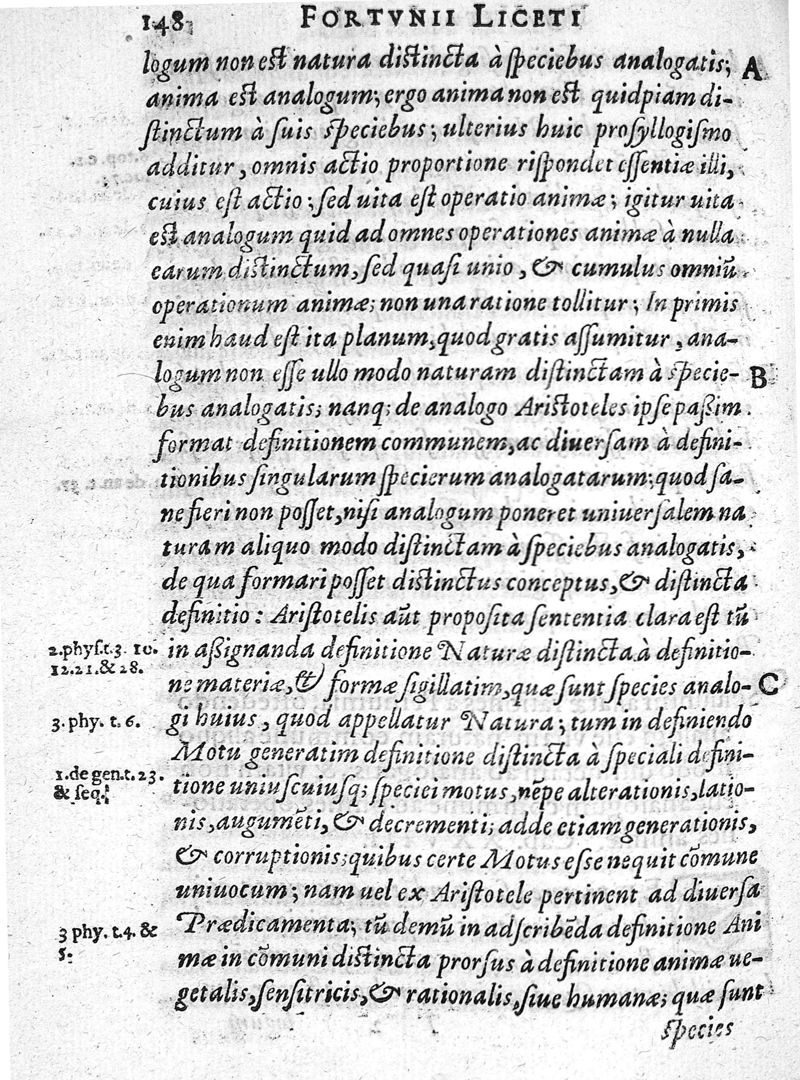 148 FORTVNII LICETI
logum non est natura distincta à speciebus analogatis; A
anima est analogum; ergo anima non est quidpiam di-
stinctum à suis speciebus; ulterius huic prosyllogismo
additur, omnis actio proportione rispondet essentiæ illi,
cuius est actio; sed uita est operatio animæ; igitur uita
est analogum quid ad omnes operationes animæ à nulla
earum distinctum, sed quasi unio, & cumulus omniũ
operationum animæ; non una ratione tollitur; In primis
enim haud est ita planum, quod gratis assumitur, ana-
logum non esse ullo modo naturam distinctam à specie- B
bus analogatis; nanq; de analogo Aristoteles ipse paßim
format definitionem communem, ac diuersam à defini-
tionibus singularum specierum analogatarum; quod sa-
ne fieri non posset, nisi analogum poneret uniuersalem na
turam aliquo modo distinctam à speciebus analogatis,
de qua formari posset distinctus conceptus, & distincta
definitio: Aristotelis aũt proposita sententia clara est tũ
2.phys.t.3. 10. in aßignanda definitione Naturæ distincta à definitio-
12.21.& 28. ne materiæ, & formæ sigillatim, quæ sunt species analo- C
3. phy. t. 6. gi huius, quod appellatur Natura; tum in definiendo
Motu generatim definitione distincta à speciali defini-
1.de gen.t. 23. tione uniuscuiusq; speciei motus, nẽpe alterationis, latio-
& seq. nis, augumẽti, & decrementi; adde etiam generationis,
& corruptionis; quibus certe Motus esse nequit cõmune
uniuocum; nam uel ex Aristotele pertinent ad diuersa
3 phy. t.4. & Prædicamenta; tũ demũ in adscribẽda definitione Ani
5. mæ in cõmuni distincta prorsus à definitione animæ ue-
getalis, sensitricis, & rationalis, siue humanæ; quæ sunt
species